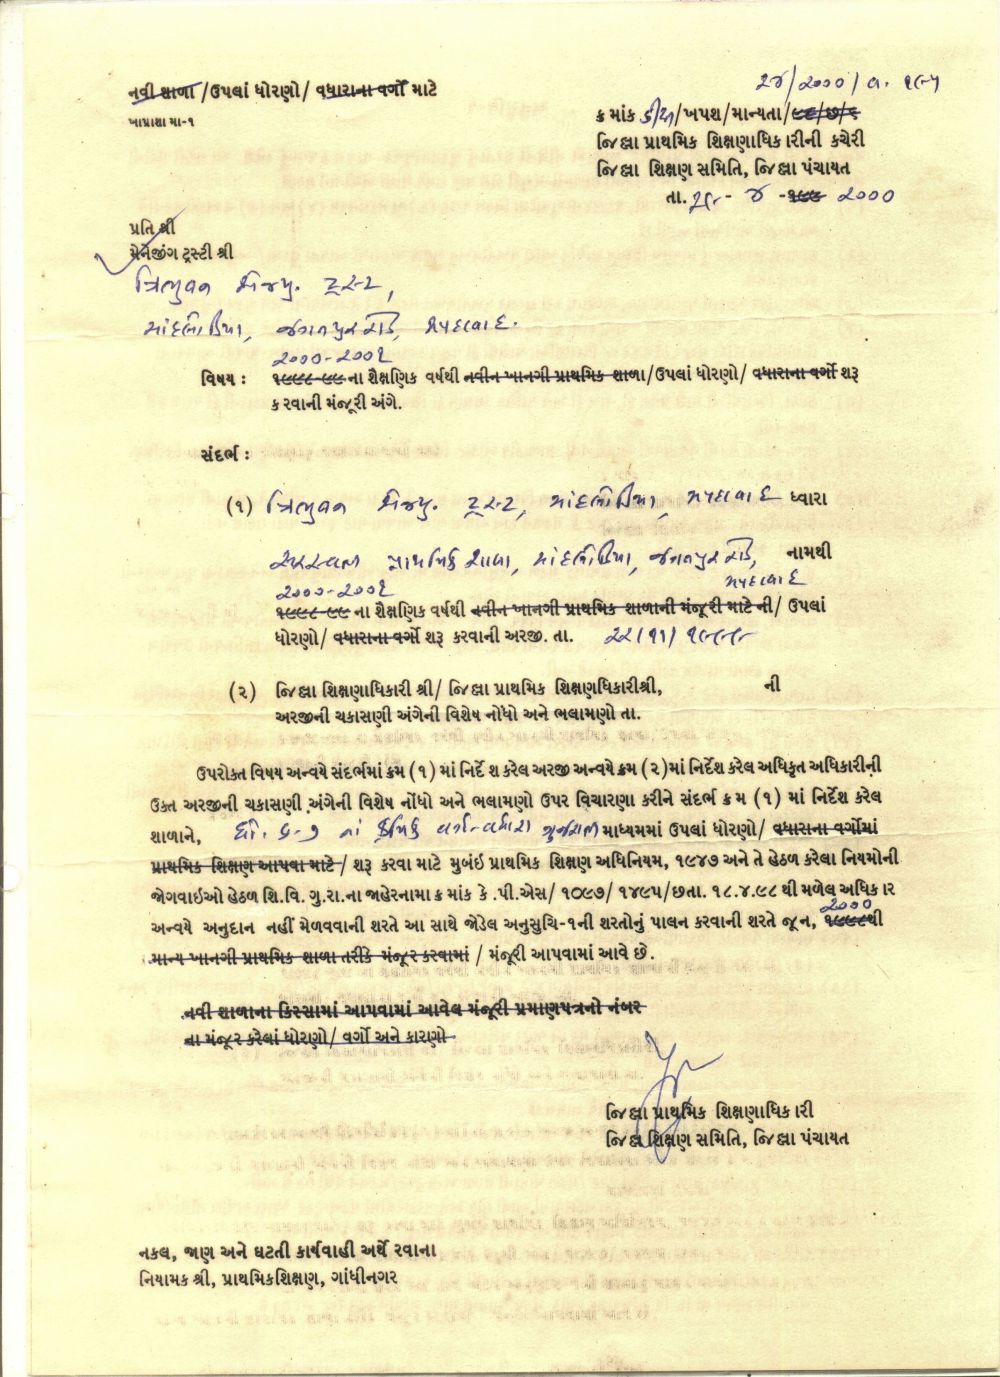 નવી શાળા/ઉપલાં ધોરણો/વધારાના વર્ગો માટે
ખાપ્રાશા મા-૧
૨૪/૨૦૦૦/વ.
ક્રમાંક ડીપી/ખપશ/માન્યતા/૯૮/છ/૬
જિલ્લા પ્રાથમિક શિક્ષણાધિકારીની કચેરી
જિલ્લા શિક્ષણ સમિતિ, જિલ્લા પંચાયત
તા. - ૪ -૧૯૯ ૨૦૦૦
પ્રતિ શ્રી
મેનેજીંગ ટ્રસ્ટી શ્રી
ત્રિભુવન એજ્યુ. ટ્રસ્ટ,
ચાંદલોડિયા, જગતપુર રોડ, અમદાવાદ.
૨૦૦૦-૨૦૦૧
વિષય : ૧૯૯૮-૯૯ ના શૈક્ષણિક વર્ષથી નવીન ખાનગી પ્રાથમિક શાળા/ઉપલાં ધોરણો/ વધારાના વર્ગો શરૂ
કરવાની મંજૂરી અંગે.
સંદર્ભ :
(૧) ત્રિભુવન એજ્યુ. ટ્રસ્ટ, ચાંદલોડિયા, અમદાવાદ ધ્વારા
સરસ્વતી પ્રાથમિક શાળા, ચાંદલોડિયા, જગતપુર રોડ, નામથી
અમદાવાદ
૨૦૦૦-૨૦૦૧
૧૯૯૮-૯૯ ના શૈક્ષણિક વર્ષથી નવીન ખાનગી પ્રાથમિક શાળાની મંજૂરી માટેની/ ઉપલાં
ધોરણો/ વધારાના વર્ગો શરૂ કરવાની અરજી. તા. ૨૨/૧૧/૧૯૯૯
(૨) જિલ્લા શિક્ષણાધિકારી શ્રી/ જિલ્લા પ્રાથમિક શિક્ષણધિકારીશ્રી, ની
અરજીની ચકાસણી અંગેની વિશેષ નોંધો અને ભલામણો તા.
ઉપરોક્ત વિષય અન્વયે સંદર્ભમાં ક્રમ (૧) માં નિર્દેશ કરેલ અરજી અન્વયે ક્રમ (૨)માં નિર્દેશ કરેલ અધિકૃત અધિકારીની
ઉક્ત અરજીની ચકાસણી અંગેની વિશેષ નોંધો અને ભલામણો ઉપર વિચારણા કરીને સંદર્ભ ક્રમ (૧) માં નિર્દેશ કરેલ
શાળાને, ધો. ૬-૭ નાં ક્રમિક વર્ગ-વધારા ગુજરાતી માધ્યમમાં ઉપલાં ધોરણો/ વધારાના વર્ગોમાં
પ્રાથમિક શિક્ષણ આપવા માટે/ શરૂ કરવા માટે મુબંઈ પ્રાથમિક શિક્ષણ અધિનિયમ, ૧૯૪૭ અને તે હેઠળ કરેલા નિયમોની
જોગવાઇઓ હેઠળ શિ.વિ. ગુ.રા.ના જાહેરનામા ક્રમાંક કે.પી.એસ/ ૧૦૯૭/ ૧૪૯૫/છતા. ૧૮.૪.૯૮ થી મળેલ અધિકાર
૨૦૦૦
અન્વયે અનુદાન નહીં મેળવવાની શરતે આ સાથે જોડેલ અનુસુચિ-૧ની શરતોનું પાલન કરવાની શરતે જૂન, ૧૯૯૮થી
માન્ય ખાનગી પ્રાથમિક શાળા તરીકે મંજૂર કરવામાં / મંજૂરી આપવામાં આવે છે.
નવી શાળાના કિસ્સામાં આપવામાં આવેલ મંજૂરી પ્રમાણપત્રનો નંબર
ના મંજૂર કરેલાં ધોરણો/ વર્ગો અને કારણો
જિલ્લા પ્રાથમિક શિક્ષણાધિકારી
જિલ્લા શિક્ષણ સમિતિ, જિલ્લા પંચાયત
નકલ, જાણ અને ઘટતી કાર્યવાહી અર્થે રવાના
નિયામકશ્રી, પ્રાથમિકશિક્ષણ, ગાંધીનગર